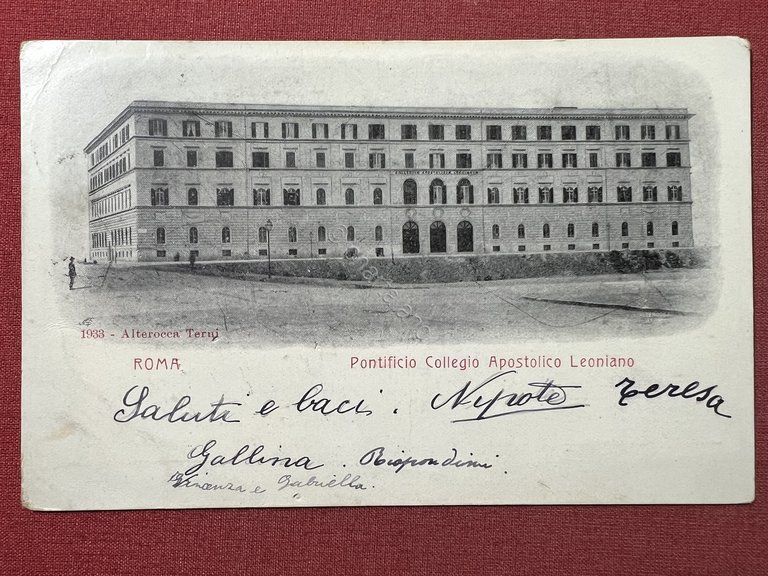 COLLEGIO APOSTOLICO LEONIANO
1933 - Alterocca Terni
ROMA Pontificio Collegio Apostolico Leoniano
Saluti e baci. Nipote Teresa
Gallina. Rispondimi.
e Gabriella.